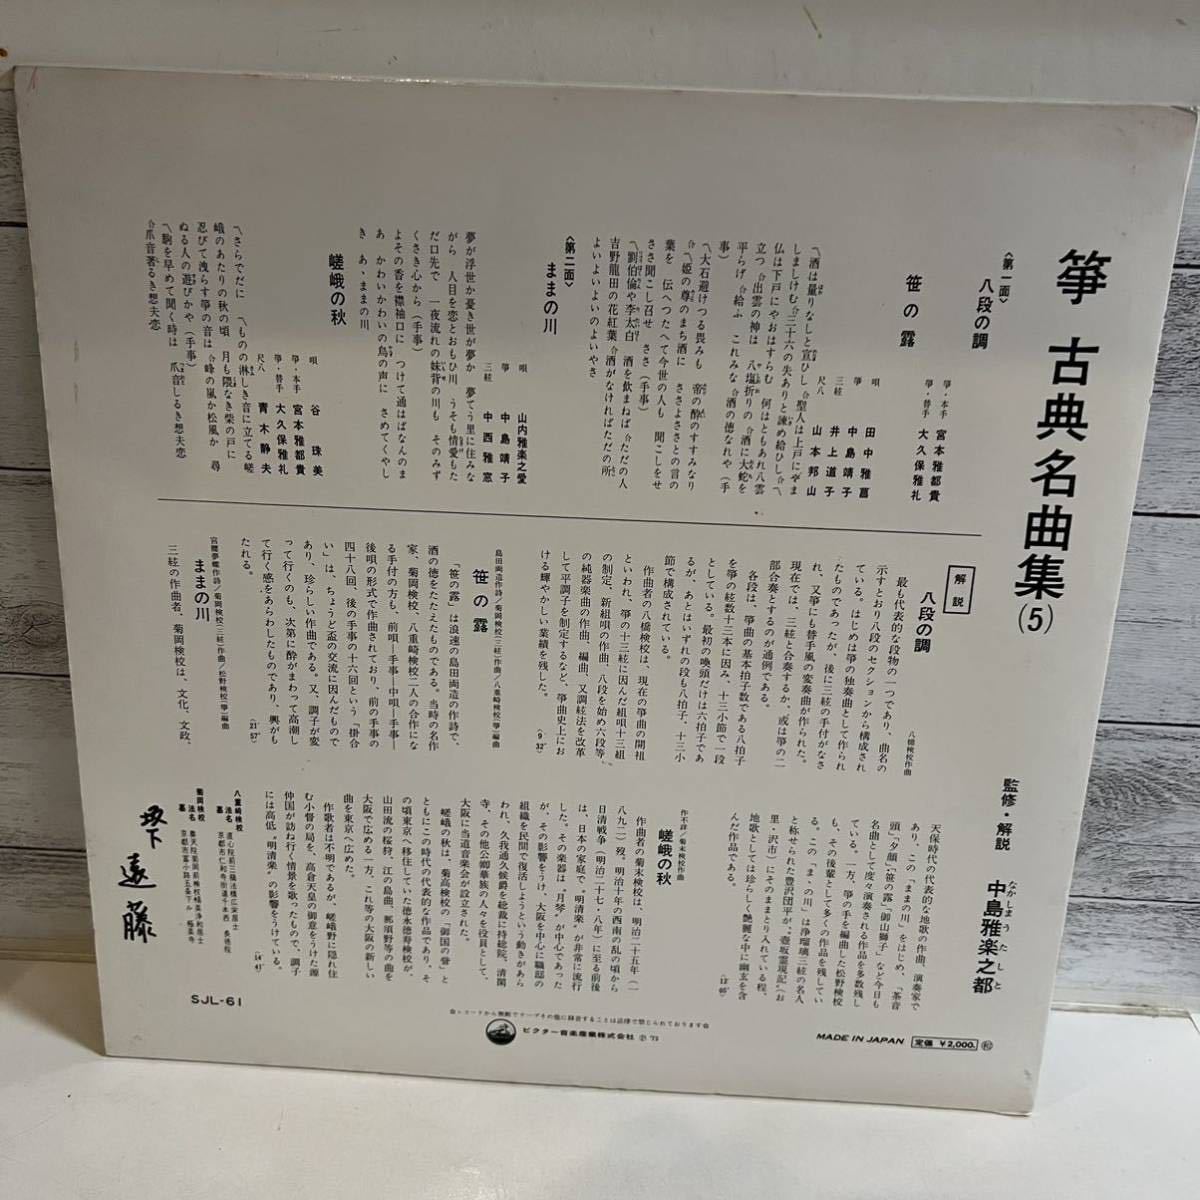 箏 古典名曲集(5)
監修・解説 中島雅楽之都
なかしまうたしと
〈第一面〉
八段の調
箏・本手 宮本雅都貴
箏・替手 大久保雅礼
笹の露
唄 田中雅菖
箏 中島靖子
三絃 井上道子
尺八 山本邦山
〽酒は量りなしと宣ひし 合聖人は上戸にやま
しましけむ 合三十六の失ありと諫め給ひし 合〽
仏は下戸にやおはすらむ 何はともあれ八雲
立つ 合出雲の神は 八塩折りの 合酒に大蛇を
平らげ 合給ふ これみな 合酒の徳なれや(手
事)
〽大石避けつる畏みも 帝の酔のすすみなり
合〽姫の尊のまち酒に ささよささとの言の
葉を 伝へつたへて今世の人も 聞こしをせ
ささ聞こし召せ ささ(手事)
〽劉伯倫や李太白 酒を飲まねば 合ただの人
吉野龍田の花紅葉 合酒がなければただの所
よいよいよいよいのよいやさ
〈第二面〉
ままの川
唄 山内雅楽之愛
箏 中島靖子
三絃 中西雅窓
夢が浮世か憂き世が夢か 夢てう里に住みな
がら 人目を恋とおもひ川 うそも情愛もた
だ口先で 一夜流れの妹背の川も そのみず
くさき心から(手事)
よその香を襟袖口に つけて通はばなんのま
あ かわいかわいの烏の声に さめてくやし
き あ、ままの川
嵯峨の秋
唄 谷珠美
箏・本手 宮本雅都貴
箏・替手 大久保雅礼
尺八 青木静夫
〽さらでだに 〽ものの淋しき音に立てる嵯
峨のあたりの秋の頃 月も隈なき柴の戸に
忍びて洩らす箏の音は 合峰の嵐か松風か 尋
ぬる人の遊びかや(手事)
〽駒を早めて聞く時は 爪音しるき想夫恋
合爪音著るき想夫恋
解説
八段の調
八橋検校作曲
最も代表的な段物の一つであり、曲名の
示すとおり八段のセクションから構成され
ている。はじめは箏の独奏曲として作られ
たものであったが、後に三絃の手付がなさ
れ、又箏にも替手風の変奏曲が作られた。
現在では、三絃と合奏するか、或は箏の二
部合奏とするのが通例である。
各段は、箏曲の基本拍子数である八拍子
を箏の絃数十三本に因み、十三小節で一段
としている。最初の喚頭だけは六拍子であ
るが、あとはいずれの段も八拍子、十三小
節で構成されている。
作曲者の八橋検校は、現在の箏曲の開祖
といわれ、箏の十三絃に因んだ組唄十三組
の制定、新組唄の作曲、八段を始め六段等、
の純器楽曲の作曲、編曲、又調絃法を改革
して平調子を制定するなど、箏曲史上にお
ける輝やかしい業績を残した。
(9′32″)
笹の露
島田両造作詩/菊岡検校(三絃)作曲/八重崎検校(箏)編曲
「笹の露」は浪速の島田両造の作詩で、
酒の徳をたたえたものである。当時の名作
家、菊岡検校、八重崎検校二人の合作にな
る手付の方も、前唄―手事―中唄―手事―
後唄の形式で作曲されており、前の手事の
四十八回、後の手事の十六回という「掛合
い」は、ちょうど盃の交流に因んだもので
あり、珍らしい作曲である。又、調子が変
って行くのも、次第に酔がまわって高潮し
て行く感をあらわしたものであり、興がも
たれる。
(21′57″)
ままの川
宮腰夢蝶作詩/菊岡検校(三絃)作曲/松野検校(箏)編曲
三絃の作曲者、菊岡検校は、文化、文政、
天保時代の代表的な地歌の作曲、演奏家で
あり、この「ままの川」をはじめ、「茶音
頭」「夕顔」「笹の露」「御山獅子」など今日も
名曲として度々演奏される作品を多数残し
ている。一方、箏の手を編曲した松野検校
も、その後輩として多くの作品を残してい
る。この「ま・の川」は浄瑠璃三絃の名人
と称せられた豊沢団平が、壺坂霊現記(お
里・沢市)にそのままとり入れている程、
地歌としては珍らしく艶麗な中に幽玄を含
んだ作品である。
(12′05″)
嵯峨の秋
作不詳/菊末検校作曲
作曲者の菊末検校は、明治二十五年(一
八九二)歿。明治十年の西南の乱の頃から
日清戦争(明治二十七・八年)に至る前後
は、日本の家庭で〝明清楽〟が非常に流行
した。その楽器は〝月琴〟が中心であった
が、その影響をうけ、大阪を中心に職邸の
組織を民間で復活しようという動きがあら
われ、久我通久候爵を総裁に持総院、清閑
寺、その他公卿華族の人々を役員として、
大阪に当道音楽会が設立された。
嵯峨の秋は、菊高検校の「御国の誉」と
ともにこの時代の代表的な作品であり、そ
の頃東京へ移住していた徳永徳寿検校が、
山田流の桜狩、江の島曲、那須野等の曲を
大阪で広める一方、これ等の大阪の新しい
曲を東京へ広めた。
作歌者は不明であるが、嵯峨野に隠れ住
む小督の局を、高倉天皇の御意をうけた源
仲国が訪ね行く情景を歌ったもので、調子
には高低〝明清楽〟の影響をうけている。
(14′41″)
八重崎検校
法名
墓
菊岡検校
法名
墓
坂下遠藤
SJL-61
※レコードから無断でテープその他に録音することは法律で禁じられております※
ビクター音楽産業株式会社 Ⓟ'73
MADE IN JAPAN
定価 ¥2,000.